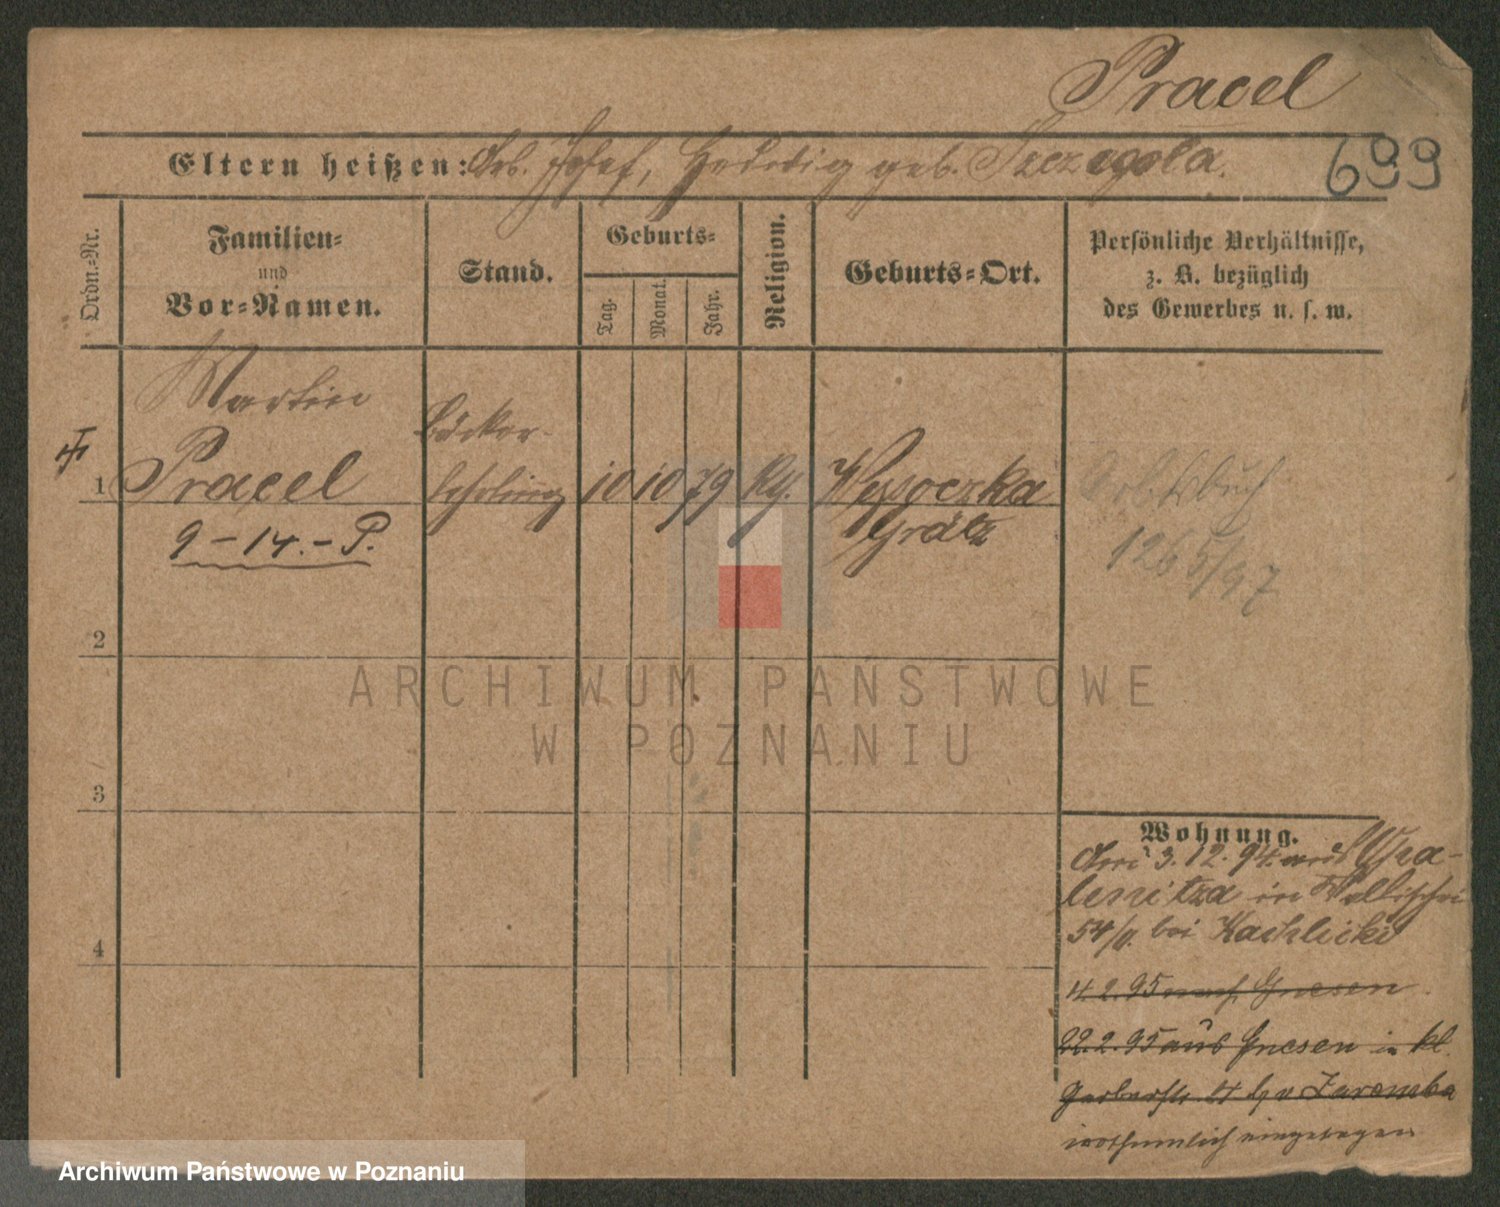 Pracel
699
Eltern heißen: Arb. Josef, Hedwig geb. Szczegola.
Ordn.-Nr.
Familien-
und
Vor-Namen.
Stand.
Geburts-
Tag.
Monat.
Jahr.
Religion.
Geburts-Ort.
Persönliche Verhältnisse,
z. B. bezüglich
des Gewerbes u. s. w.
Martin
Bäcker-
1 Pracel lehrling 10 10 79 Wysoczka
Grätz
9-14.-P.
Arbeitsbuch
1265/97
2
3
4
Wohnung.
3.12.94 aus
lenitza in Wallischei
54/ bei Kachlicki
4.2.95 nach Gnesen
22.2.95 aus Gnesen in kl.
Gerberstr. 4 Zaremba
irrthümlich eingetragen
ARCHIWUM PAŃSTWOWE
W POZNANIU
Archiwum Państwowe w Poznaniu